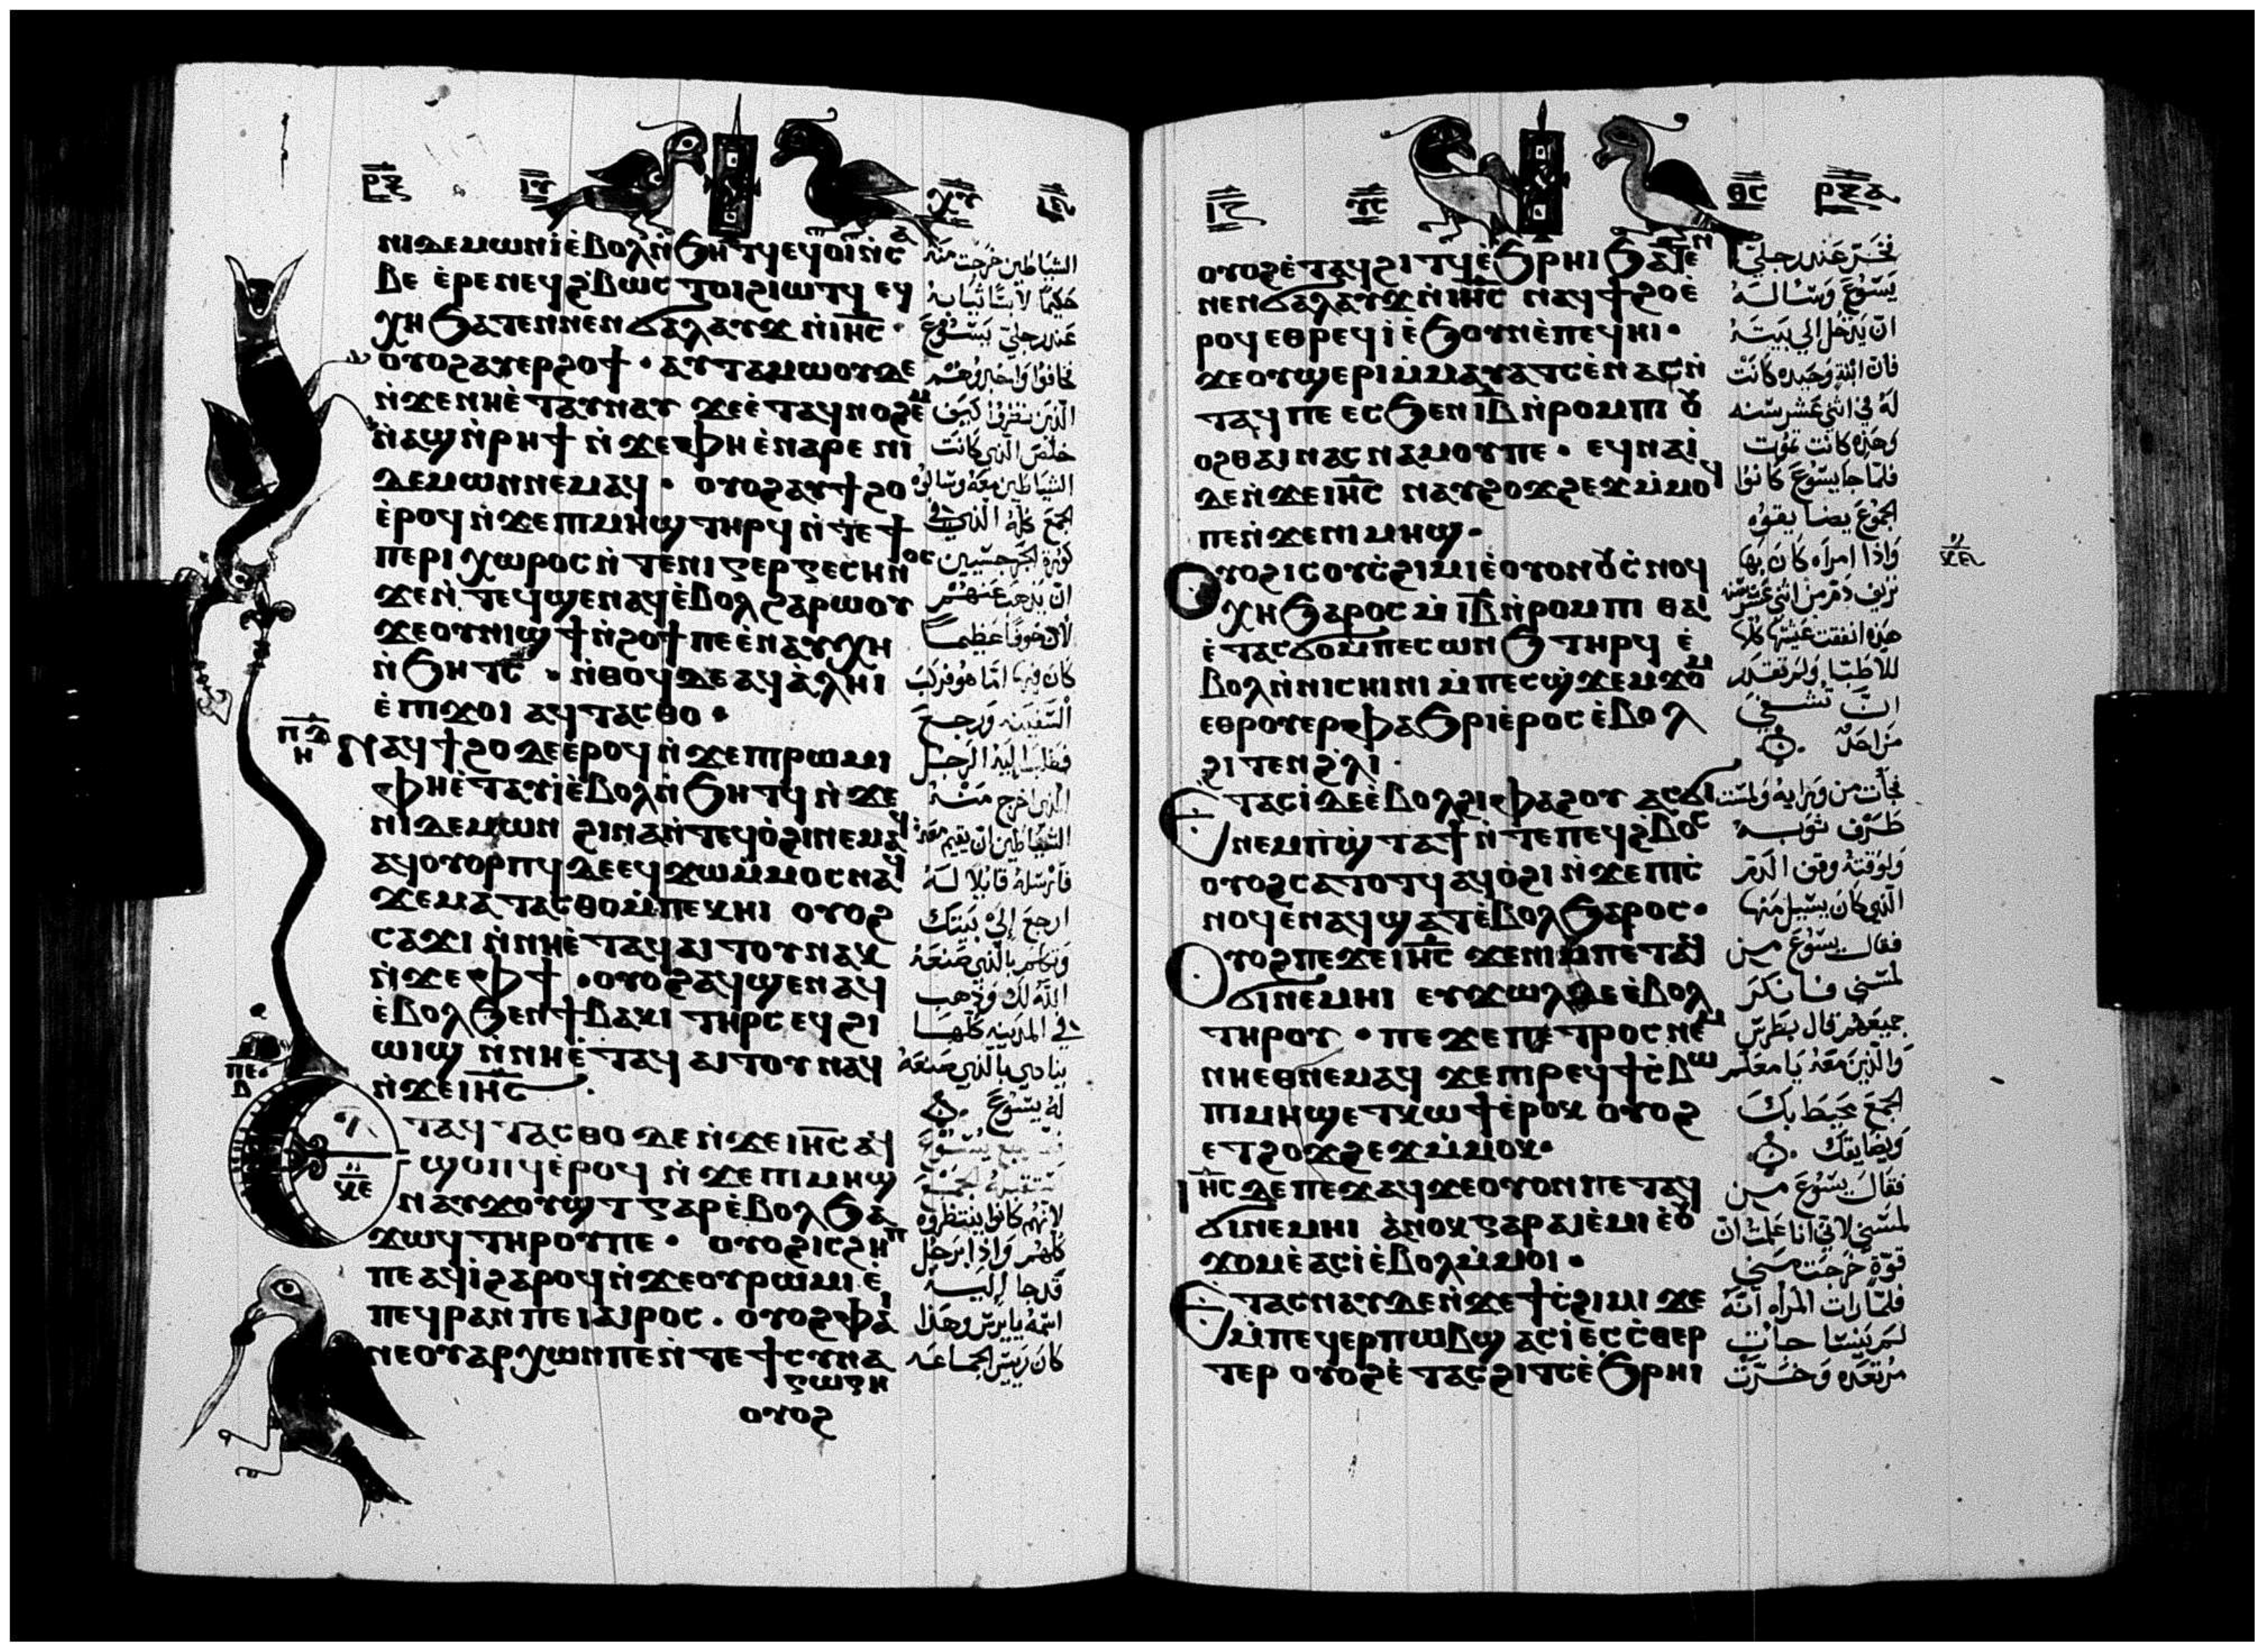 ⲣⲝ ⲓⲏ̅ⲥ̅ ⲭ̅ⲥ̅
ⲛⲓⲇⲉⲙⲱⲛ ⲉ̀ⲃⲟⲗ ⲛ̀ϧⲏⲧϥ ⲉϥⲟⲓ ⲛ̀ⲥⲁ
ⲃⲉ ⲉ̀ⲣⲉ ⲛⲉϥϩ̀ⲃⲱⲥ ⲧⲟⲓ ϩⲓⲱⲧϥ ⲉϥ
ⲭⲏ ϧⲁⲧⲉⲛ ⲛⲉⲛϭⲁⲗⲁⲩϫ ⲛ̀ⲓⲏ̅ⲥ̅ ·
ⲟⲩⲟϩ ⲁⲩⲉⲣϩⲟϯ · ⲁⲩⲧⲁⲙⲱⲟⲩ ⲇⲉ
ⲛ̀ϫⲉ ⲛⲏⲉ̀ⲧⲁⲩⲛⲁⲩ ϫⲉ ⲉ̀ⲧⲁϥⲛⲟϩⲉⲙ
ⲛ̀ⲁϣ ⲛ̀ⲣⲏϯ ⲛ̀ϫⲉ ⲫⲏ ⲉ̀ⲛⲁⲣⲉ ⲛⲓ
ⲇⲉⲙⲱⲛ ⲛⲉⲙⲁϥ · ⲟⲩⲟϩ ⲁⲩϯϩⲟ
ⲉ̀ⲣⲟϥ ⲛ̀ϫⲉ ⲡⲓⲙⲏϣ ⲧⲏⲣϥ ⲛ̀ⲧⲉ ϯ
ⲡⲉⲣⲓⲭⲱⲣⲟⲥ ⲛ̀ⲧⲉ ⲛⲓⲅⲉⲣⲅⲉⲥⲏⲛⲟⲥ
ϫⲉⲛ̀ⲧⲉϥϣⲉⲛⲁϥ ⲉ̀ⲃⲟⲗ ϩⲁⲣⲱⲟⲩ
ϫⲉ ⲟⲩⲛⲓϣϯ ⲛ̀ϩⲟϯ ⲡⲉ ⲉ̀ⲛⲁⲩⲭⲏ
ⲛ̀ϧⲏⲧⲥ · ⲛ̀ⲑⲟϥ ⲇⲉ ⲁϥⲁ̀ⲗⲏⲓ
ⲉ̀ⲡⲓϫⲟⲓ ⲁϥⲧⲁⲥⲑⲟ ·
ⲛⲁϥϯϩⲟ ⲇⲉ ⲉ̀ⲣⲟϥ ⲛ̀ϫⲉ ⲡⲓⲣⲱⲙⲓ
ⲫⲏ ⲉ̀ⲧⲁⲩⲓ̀ ⲉ̀ⲃⲟⲗ ⲛ̀ϧⲏⲧϥ ⲛ̀ϫⲉ
ⲛⲓⲇⲉⲙⲱⲛ ϩⲓⲛⲁ ⲛ̀ⲧⲉϥⲟ̀ϩⲓ ⲛⲉⲙⲁϥ
ⲁϥⲟⲩⲟⲣⲡϥ ⲇⲉ ⲉϥϫⲱ ⲙ̀ⲙⲟⲥ ⲛⲁϥ
ϫⲉ ⲙⲁⲧⲁⲥⲑⲟ ⲙ̀ⲡⲉⲕⲏⲓ ⲟⲩⲟϩ
ⲥⲁϫⲓ ⲛ̀ⲛⲏⲉ̀ⲧⲁϥⲁⲓⲧⲟⲩ ⲛⲁⲕ
ⲛ̀ϫⲉ ⲫϯ · ⲟⲩⲟϩ ⲁϥϣⲉⲛⲁϥ
ⲉ̀ⲃⲟⲗ ϧⲉⲛ ϯⲃⲁⲕⲓ ⲧⲏⲣⲥ ⲉϥϩⲓ
ⲱⲓϣ ⲛ̀ⲛⲏⲉ̀ⲧⲁϥⲁⲓⲧⲟⲩ ⲛⲁϥ
ⲛ̀ϫⲉ ⲓⲏ̅ⲥ̅ ·
ⲧⲁϥⲧⲁⲥⲑⲟ ⲇⲉ ⲛ̀ϫⲉ ⲓⲏ̅ⲥ̅ ⲁϥ
ϣⲟⲡϥ ⲉ̀ⲣⲟϥ ⲛ̀ϫⲉ ⲡⲓⲙⲏϣ
ⲛⲁⲩϫⲟⲩϣⲧ ⲅⲁⲣ ⲉ̀ⲃⲟⲗ ϧⲁ
ϫⲱϥ ⲧⲏⲣⲟⲩ ⲡⲉ · ⲟⲩⲟϩ ⲓⲥ ϩⲏⲡ
ⲡⲉ ⲁϥⲓ̀ ϩⲁⲣⲟϥ ⲛ̀ϫⲉ ⲟⲩⲣⲱⲙⲓ ⲉ̀
ⲡⲉϥⲣⲁⲛ ⲡⲉ ⲓⲁⲓⲣⲟⲥ · ⲟⲩⲟϩ ⲫⲁⲓ
ⲛⲉ ⲟⲩⲁⲣⲭⲱⲛ ⲡⲉ ⲛ̀ⲧⲉ ϯⲥⲩⲛⲁ
ⲅⲱⲅⲏ
ⲟⲩⲟϩ
ⲡⲇ
ⲏ
ⲡⲉ
ⲇ
الشياطين خرجت منه
حكيمًا لابسًا ثيابه
عند رجلي يسوع
فخافوا واخبروهم
الذين نظروا كيف
خلص الذي كانت
الشياطين معه وسالوه
الجمع كله الذي في
كورة الجرجسيين
ان يذهب عنهم
لان خوفًا عظيمًا
كان فيها امّا هو فركب
السفينه ورجع
فطلب اليه الرجل
الذي اخرج منه
الشياطين ان يقيم معه
فارسله قايلا له
ارجع الي بيتك
وتكلم بالذي صنعه
الله لك وذهب
في المدينه كلها
ينادي بالذي صنعه
له يسوع
لانهم كانوا ينتظروه
كلهم واذا برجل
قد جا اليه
اسمه يايرس وهذا
كان رييس الجماعه
ⲓ̅ⲥ̅ ⲑⲥ ⲣⲝⲁ
ⲟⲩⲟϩ ⲉ̀ⲧⲁϥϩⲓⲧϥ ⲉ̀ϧⲣⲏⲓ ϧⲁⲧⲉⲛ
ⲛⲉⲛϭⲁⲗⲁⲩϫ ⲛ̀ⲓⲏ̅ⲥ̅ ⲛⲁϥϯϩⲟ ⲉ̀
ⲣⲟϥ ⲉⲑⲣⲉϥⲓ̀ ⲉ̀ϧⲟⲩⲛ ⲉ̀ⲡⲉϥⲏⲓ ·
ϫⲉ ⲟⲩϣⲉⲣⲓ ⲙ̀ⲙⲁⲩⲁⲧⲥ ⲉ̀ⲛⲁⲥⲛ̀
ⲧⲁϥ ⲡⲉ ⲉⲥϧⲉⲛ ⲓ̅ⲃ̅ ⲛ̀ⲣⲟⲙⲡⲓ ⲟⲩ
ⲟϩ ⲑⲁⲓ ⲛⲁⲥⲛⲁⲙⲟⲩ ⲡⲉ · ⲉϥⲛⲁⲓ̀
ⲇⲉ ⲛ̀ϫⲉ ⲓⲏ̅ⲥ̅ ⲛⲁⲩϩⲟϫϩⲉϫ ⲙ̀ⲙⲟϥ
ⲡⲉ ⲛ̀ϫⲉ ⲛⲓⲙⲏϣ ·
ⲟⲩⲟϩ ⲓⲥ ⲟⲩⲥ̀ϩⲓⲙⲓ ⲉ̀ⲟⲩⲟⲛ ⲟⲩⲥ̀ⲛⲟϥ
ⲭⲏ ϧⲁⲣⲟⲥ ⲙ̀ⲓ̅ⲃ̅ ⲛ̀ⲣⲟⲙⲡⲓ ⲑⲁⲓ
ⲉ̀ⲧⲁⲥϭⲟ ⲙ̀ⲡⲉⲥⲱⲛϧ ⲧⲏⲣϥ ⲉ̀
ⲃⲟⲗ ⲛ̀ⲛⲓⲥⲏⲓⲛⲓ ⲙ̀ⲡⲉⲥϣ̀ϫⲉⲙϫⲟⲙ
ⲉⲑⲣⲟⲩⲉⲣⲫⲁϧⲣⲓ ⲉ̀ⲣⲟⲥ ⲉ̀ⲃⲟⲗ
ϩⲓⲧⲉⲛ ϩ̀ⲗⲓ ·
ⲉⲧⲁⲥⲓ̀ ⲇⲉ ⲉ̀ⲃⲟⲗ ϩⲓⲫⲁϩⲟⲩ ⲁⲥϭⲓ
ⲛⲉⲙ ⲡ̀ϣ̀ⲧⲁϯ ⲛ̀ⲧⲉ ⲡⲉϥϩ̀ⲃⲟⲥ
ⲟⲩⲟϩ ⲥⲁⲧⲟⲧϥ ⲁϥⲟ̀ϩⲓ ⲛ̀ϫⲉ ⲡⲓⲥ̀
ⲛⲟϥ ⲉ̀ⲛⲁϥϣⲁⲧ ⲉ̀ⲃⲟⲗ ϧⲁⲣⲟⲥ ·
ⲟⲩⲟϩ ⲡⲉϫⲉ ⲓⲏ̅ⲥ̅ ϫⲉ ⲛⲓⲙ ⲡⲉⲧⲁϥ
ϭⲓ ⲛⲉⲙⲏⲓ ⲉⲩϫⲱⲗ ⲇⲉ ⲉ̀ⲃⲟⲗ
ⲧⲏⲣⲟⲩ · ⲡⲉϫⲉ ⲡⲉⲧⲣⲟⲥ ⲛⲉⲙ
ⲛⲏⲉⲑⲛⲉⲙⲁϥ ϫⲉ ⲡⲓⲣⲉϥϯⲥ̀ⲃⲱ
ⲡⲓⲙⲏϣ ⲉⲧⲕⲱϯ ⲉ̀ⲣⲟⲕ ⲟⲩⲟϩ
ⲉⲧϩⲟϫϩⲉϫ ⲙ̀ⲙⲟⲕ ·
ⲓⲏ̅ⲥ̅ ⲇⲉ ⲡⲉϫⲁϥ ϫⲉ ⲟⲩⲟⲛ ⲡⲉⲧⲁϥ
ϭⲓ ⲛⲉⲙⲏⲓ ⲁ̀ⲛⲟⲕ ⲅⲁⲣ ⲁⲓⲉ̀ⲙⲓ ⲉ̀ⲟⲩ
ϫⲟⲙ ⲉ̀ⲁⲥⲓ̀ ⲉ̀ⲃⲟⲗ ⲙ̀ⲙⲟⲓ ·
ⲉⲧⲁⲥⲛⲁⲩ ⲇⲉ ⲛ̀ϫⲉ ϯⲥ̀ϩⲓⲙⲓ ϫⲉ
ⲙ̀ⲡⲉϥⲉⲣⲡⲱⲃϣ ⲁⲥⲓ̀ ⲉⲥⲥ̀ⲑⲉⲣ
ⲧⲉⲣ ⲟⲩⲟϩ ⲉ̀ⲧⲁⲥϩⲓⲧⲥ ⲉ̀ϧⲣⲏⲓ
فخرّ عند رجلي
يسوع وساله
ان يدخل الي بيته
فان ابنة وحيده كانت
له في اثني عشر سنه
وهذه كانت تموت
فلما جا يسوع كانوا
الجموع يضايقوه
واذا امراه كان بها
نزيف دم من اثني عشر سنه
هذه انفقت عيشها كلها
للاطبا ولم تقدر
ان تشفي
من احد
فجآت من ورايه ولمست
طرف ثوبه
ولوقته وقف الدم
الذي كان يسيل منها
فقال يسوع من
لمسني فانكر
جميعهم قال بطرس
والذين معه يا معلم
الجمع محيط بك
ويضايقك
فقال يسوع من
لمسني لاني انا علمت ان
قوة خرجت مني
فلما رات المراه انه
لم ينسا جات
مرتعده وخرت